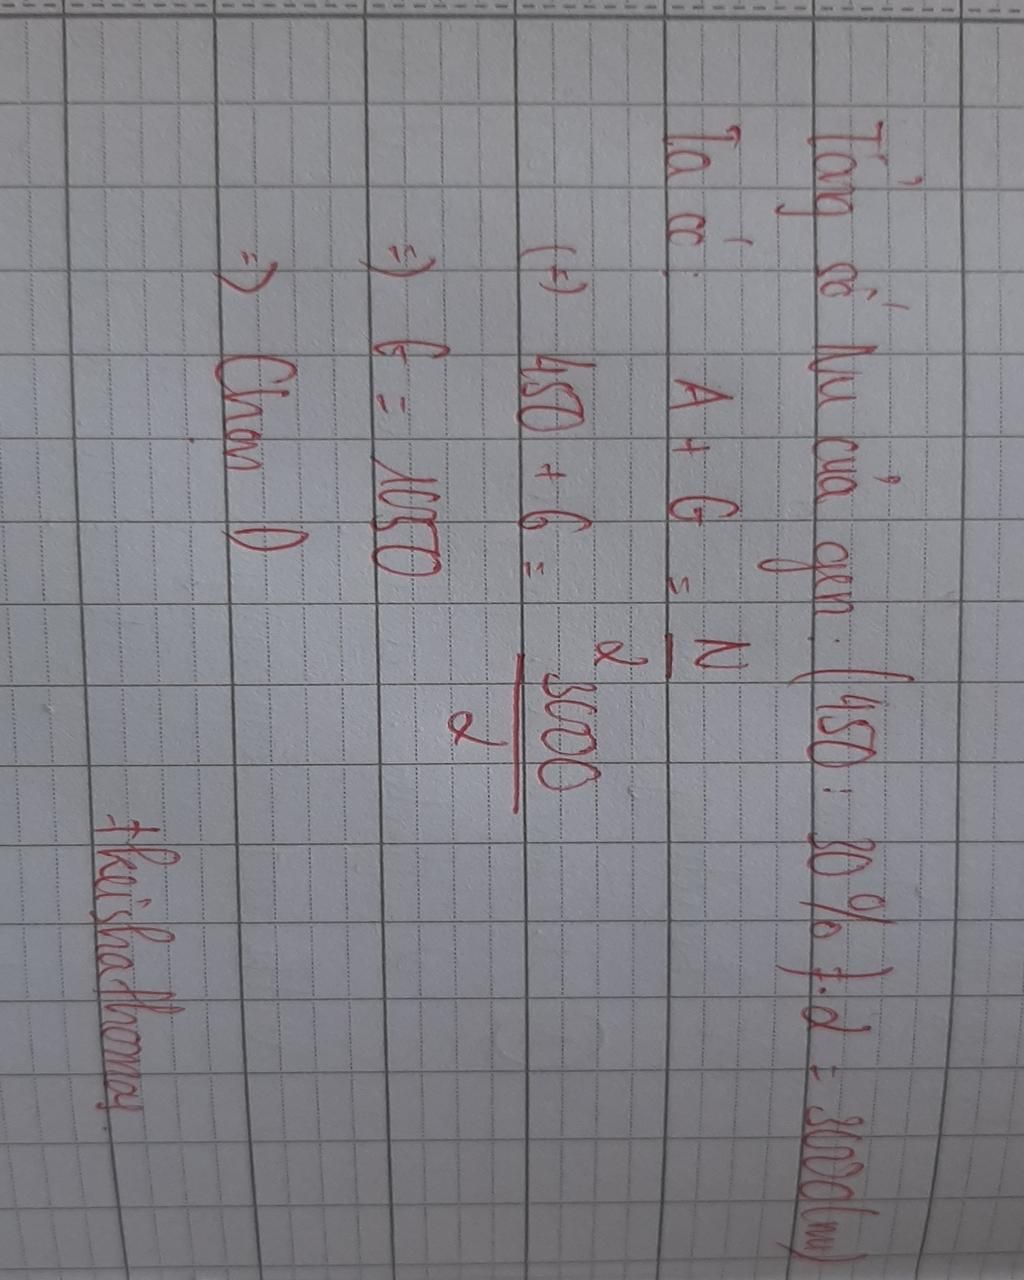 Tổng số Nu của gen: (450 : 30%).2 = 3000 (nu)
Ta có: A + G = N/2
(=) 450 + G = 3000/2
=) G = 1050
=) Chọn D